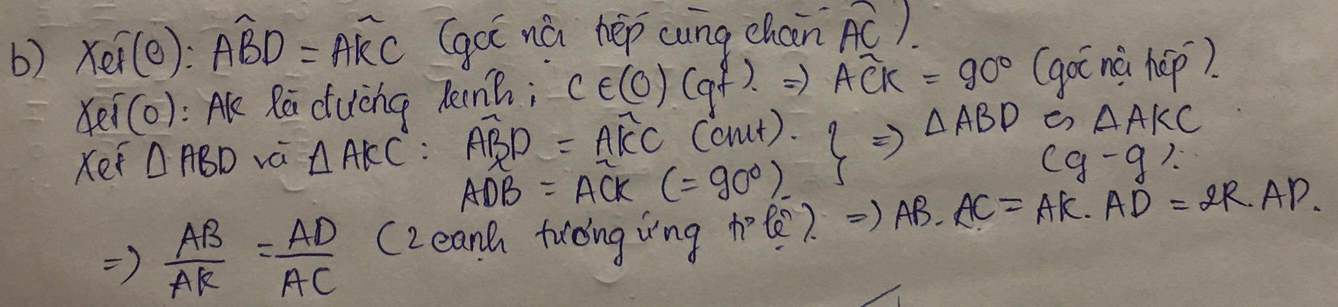 b) Xét(O): ∠ABD = ∠AKC (góc nội tiếp cùng chắn AC).
Xét(O): AK là đường kính; C∈(O) (gt). => ∠ACK = 90° (góc nội tiếp).
Xét △ABD và △AKC: ∠ABD = ∠AKC (cmt). } => △ABD ∽ △AKC
∠ADB = ∠ACK (=90°) (g-g).
=> AB/AK = AD/AC (2 cạnh tương ứng tỉ lệ). => AB.AC = AK.AD = 2R.AD.